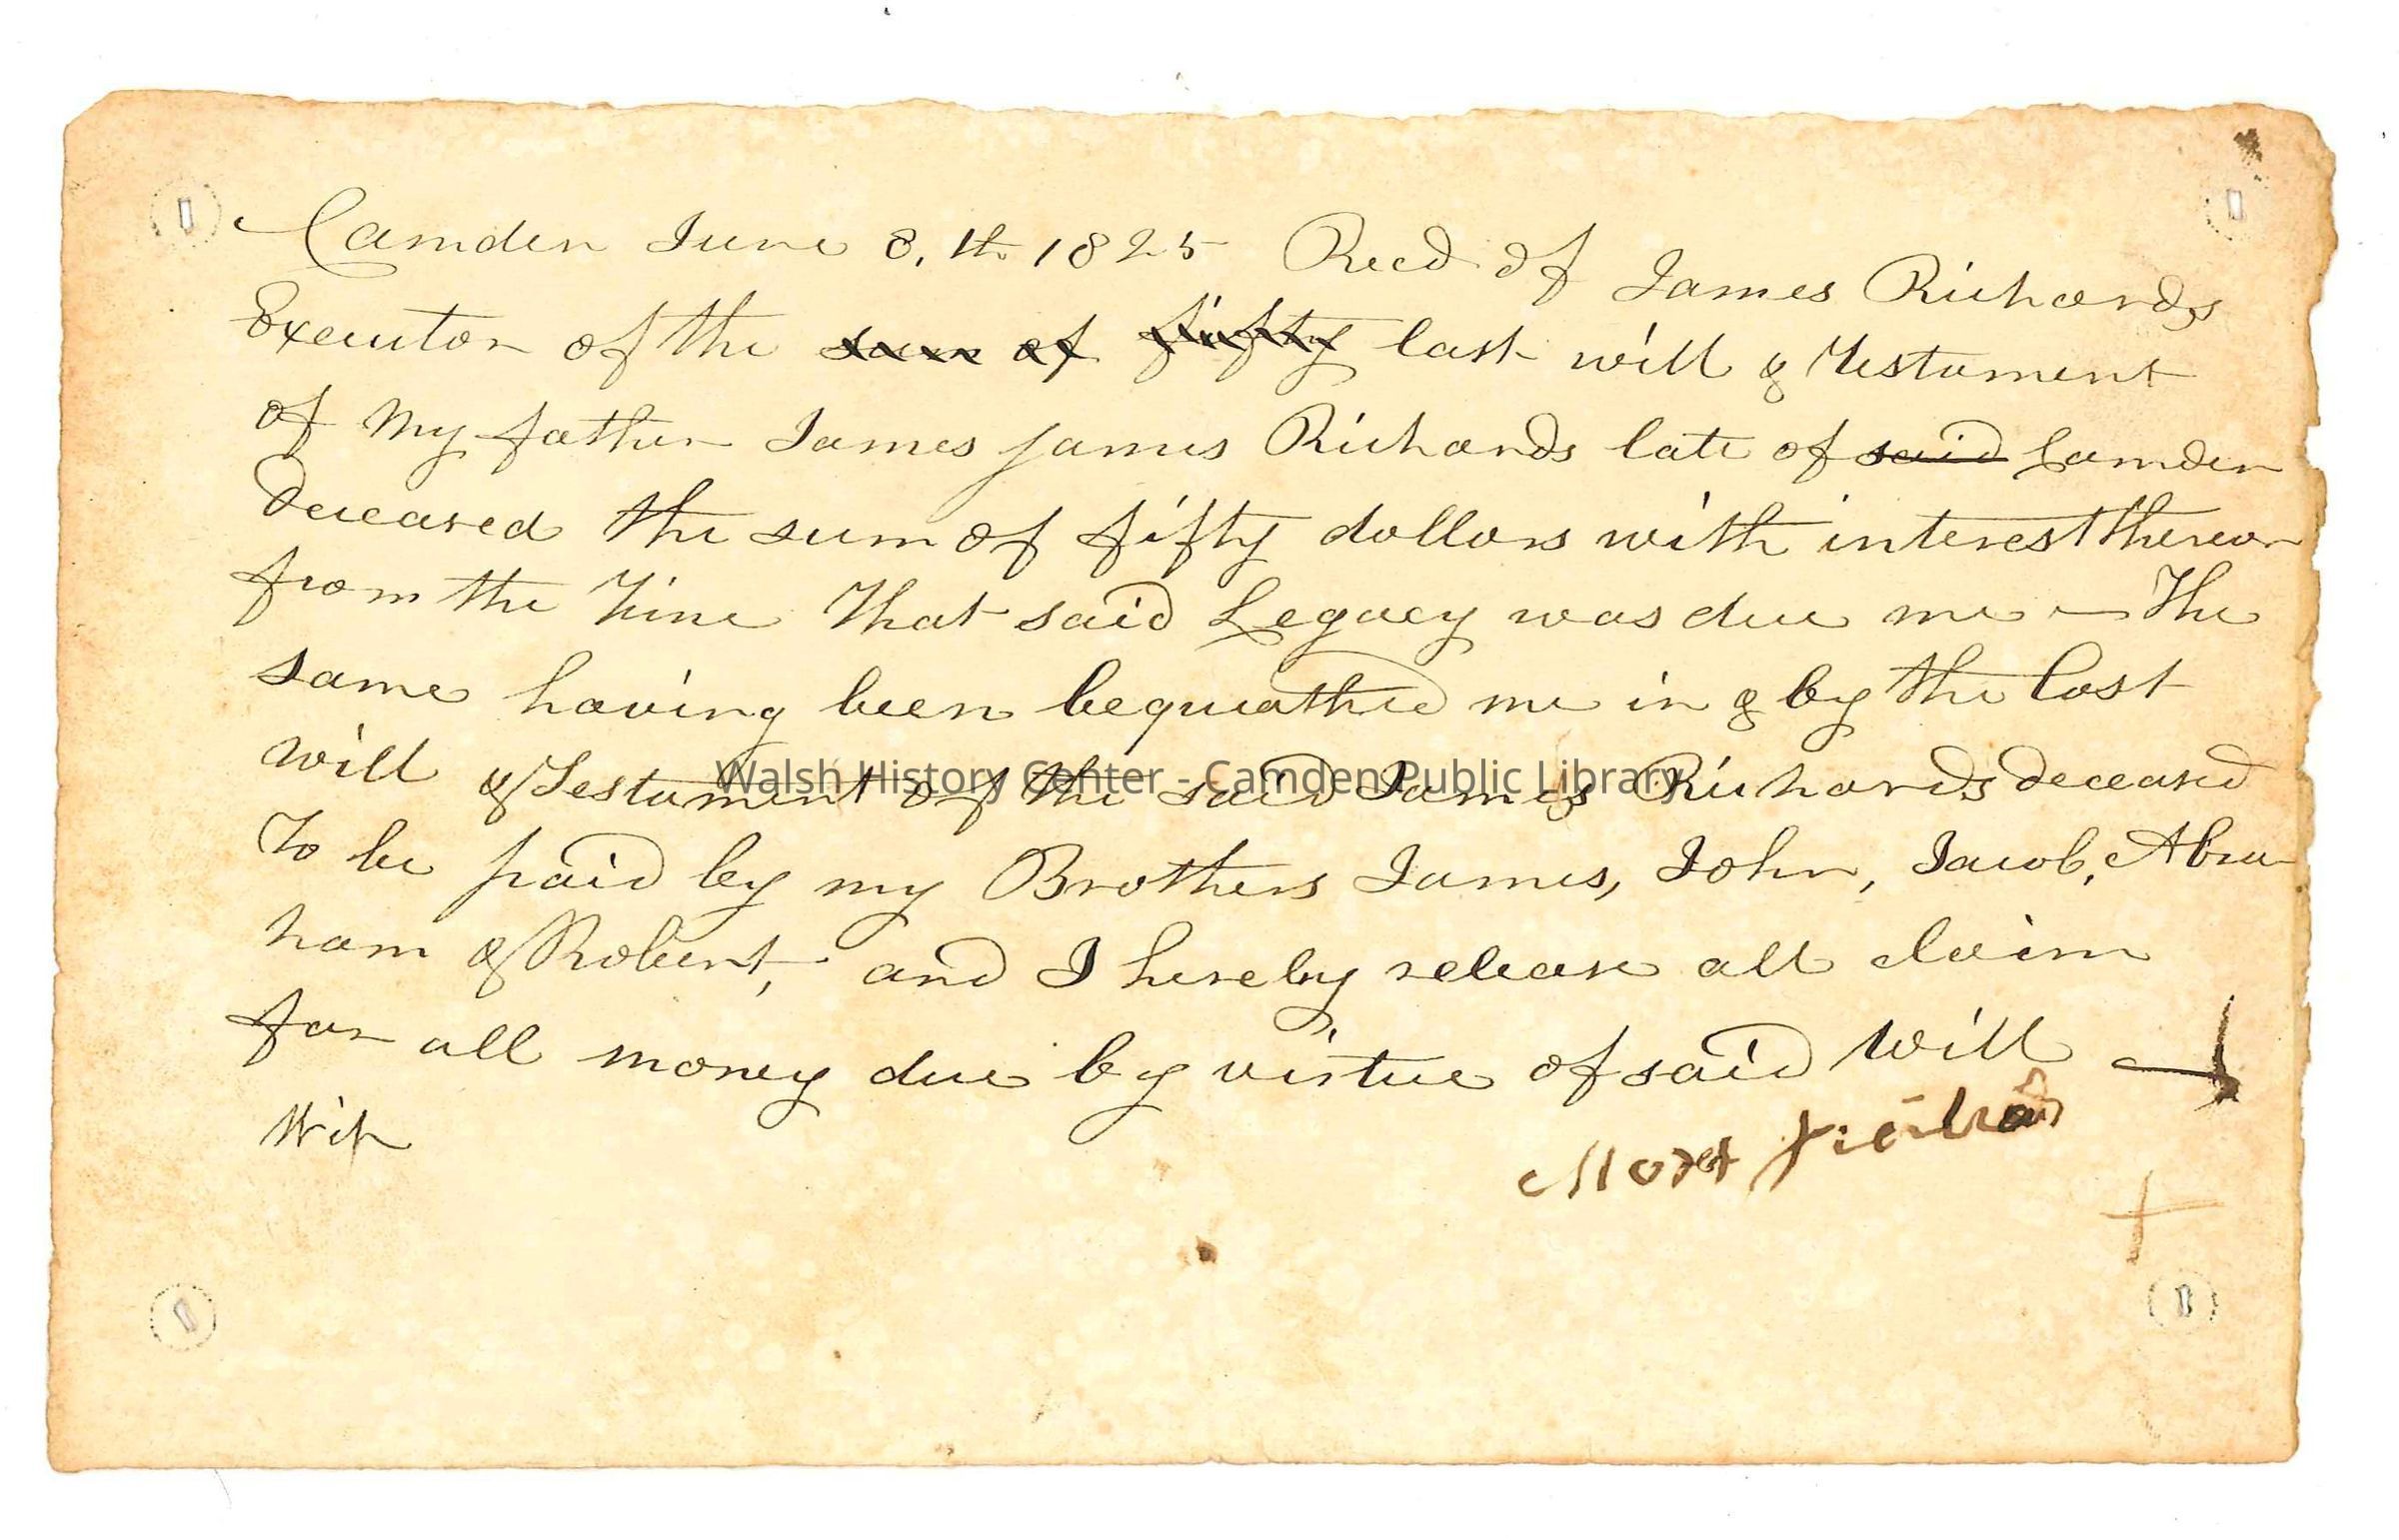 Camden June 8.th 1825 Recd of James Richards
Executor of the sum of fifty last will & Testament
of My father James James Richards late of said Camden
deceased the sum of fifty dollars with interest thereon
from the time that said Legacy was due me — The
same having been bequeathed me in & by the last
will & Testament of the said James Richards deceased
Walsh History Center - Camden Public Library
To be paid by my Brothers James, John, Jacob, Abra
ham & Robert, and I hereby release all claim
for all money due by virtue of said Will
Wit